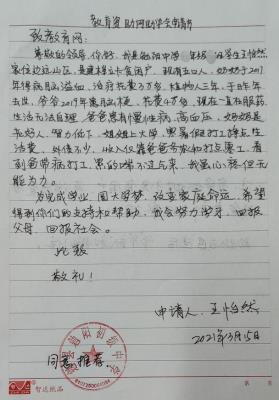 教育资助网助学生申请
致教育网:
尊敬的领导,你好,我是勉阳中学 年级 班学生王怡然
家住边远山区,是建档立卡贫困户,现有五口人,奶奶于2017
年得病脑溢血,治疗花费3万多,植物人三年,于昨年
去世,爸爸2019年患脑梗,花费4万多,现在一直在服药
生活无法自理,爸爸患有慢性病,高血压,奶奶是
老好人,智力低下,姐姐上大学,寒暑假打工挣点生
活费,外债不少,收入仅靠爸爸务农和打点零工,看
到爸带病打工,累的喘不过气来,我虽心疼但无
能为力。
为完成学业,圆大学梦,改变家庭命运,希望
得到你们的支持和帮助,我会努力学习,回报
父母,回报社会。
此致
敬礼!
申请人:王怡然
2021年3月15日
同意推荐
勉阳初级中学
智达纸品